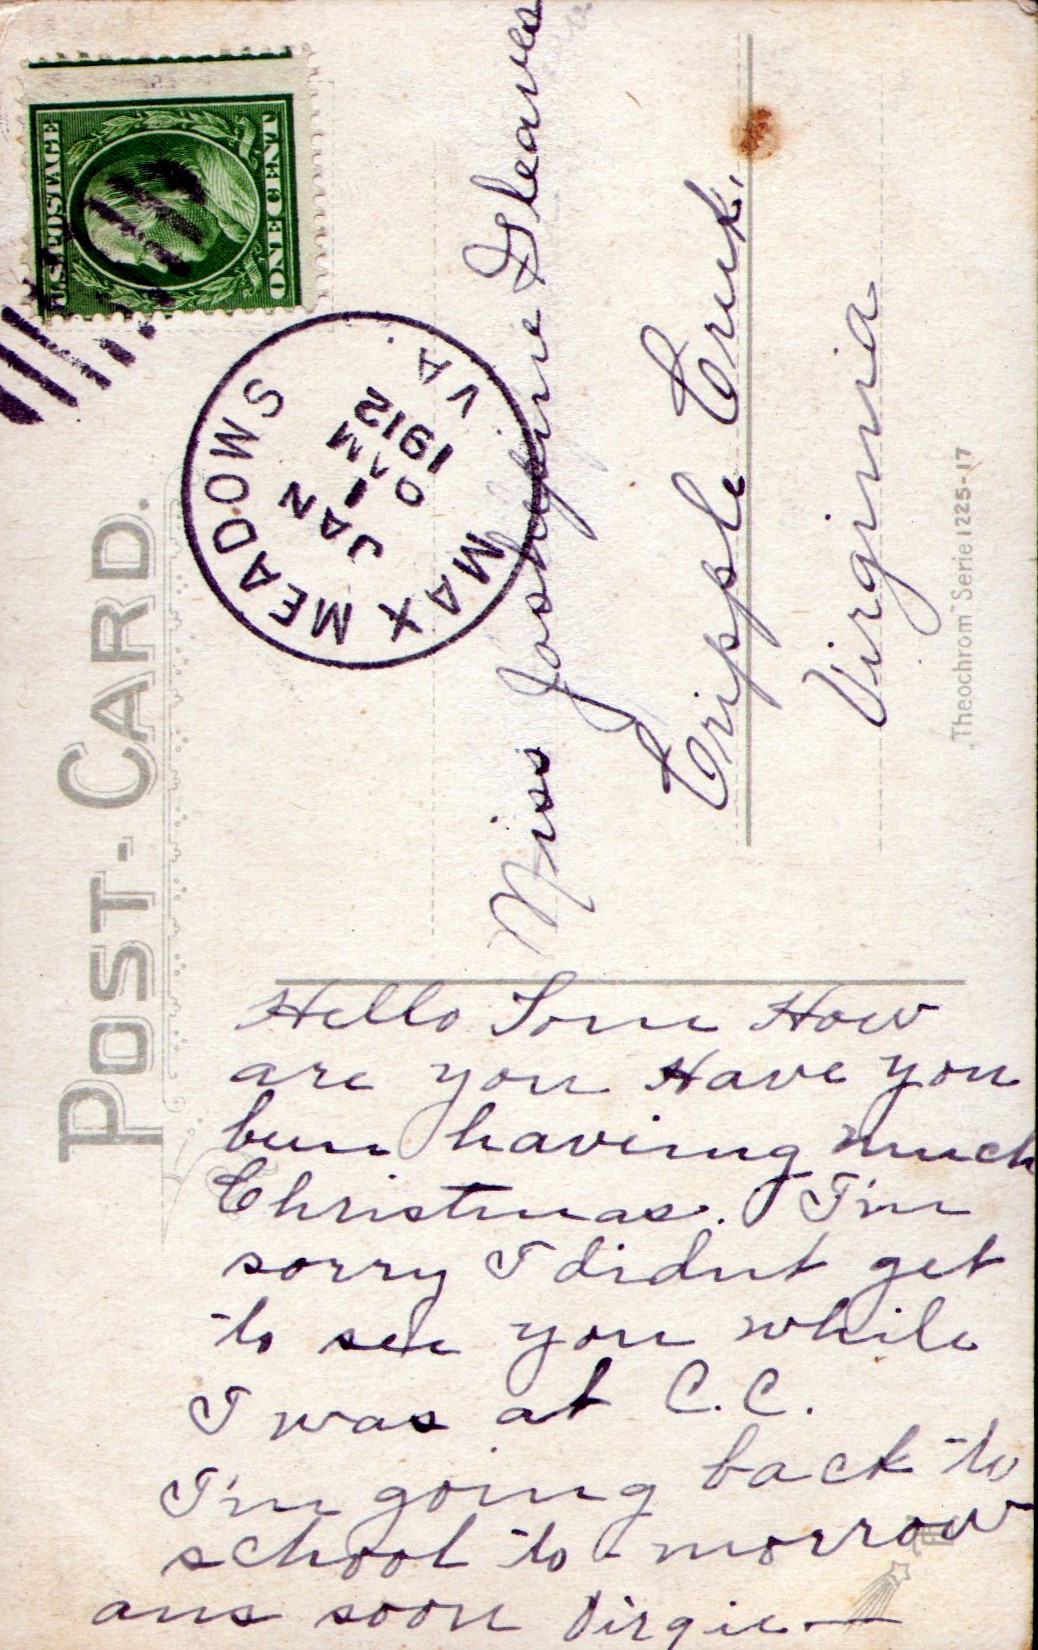 POST-CARD.
U.S. POSTAGE
ONE CENT
MAX MEADOWS
VA.
JAN
1
AM
1912
Miss Joshephine Gleaves
Cripple Creek.
Virginia
Theochrom Serie 1225-17
Hello How
are you Have you
been having much
Christmas. I'm
sorry I didnt get
to see you while
I was at C.C.
I'm going back to
school to-morrow
ans soon Virgie.